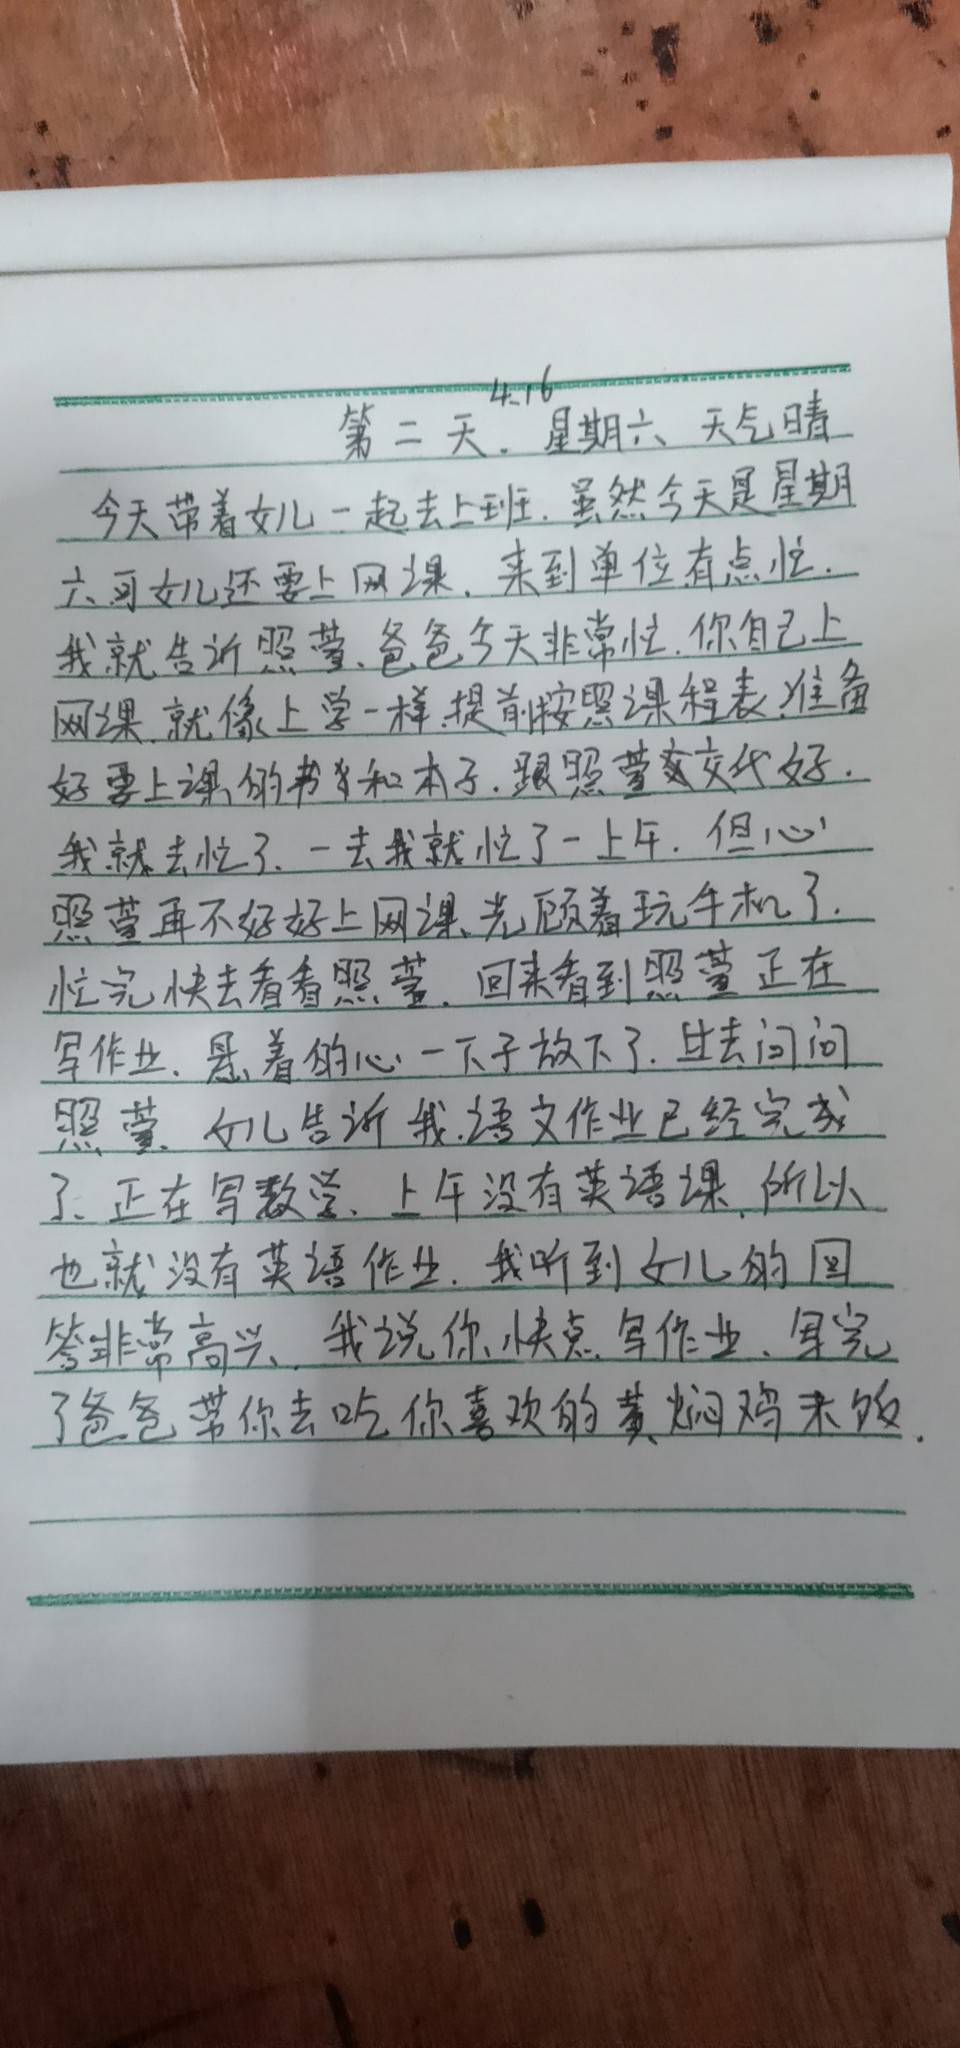 4.16
第二天. 星期六、天气晴
今天带着女儿一起去上班. 虽然今天是星期
六、可女儿还要上网课. 来到单位有点忙.
我就告诉照萱、爸爸今天非常忙. 你自己上
网课. 就像上学一样. 提前按照课程表. 准备
好要上课的书和本子. 跟照萱交代好.
我就去忙了. 一去我就忙了一上午. 但心
照萱再不好好上网课、光顾着玩手机了.
忙完快去看看照萱. 回来看到照萱正在
写作业. 悬着的心一下子放下了. 过去问问
照萱、女儿告诉我. 语文作业已经完成
了、正在写数学、上午没有英语课. 所以
也就没有英语作业. 我听到女儿的回
答非常高兴. 我说你快点写作业、写完
了爸爸带你去吃你喜欢的黄焖鸡米饭.